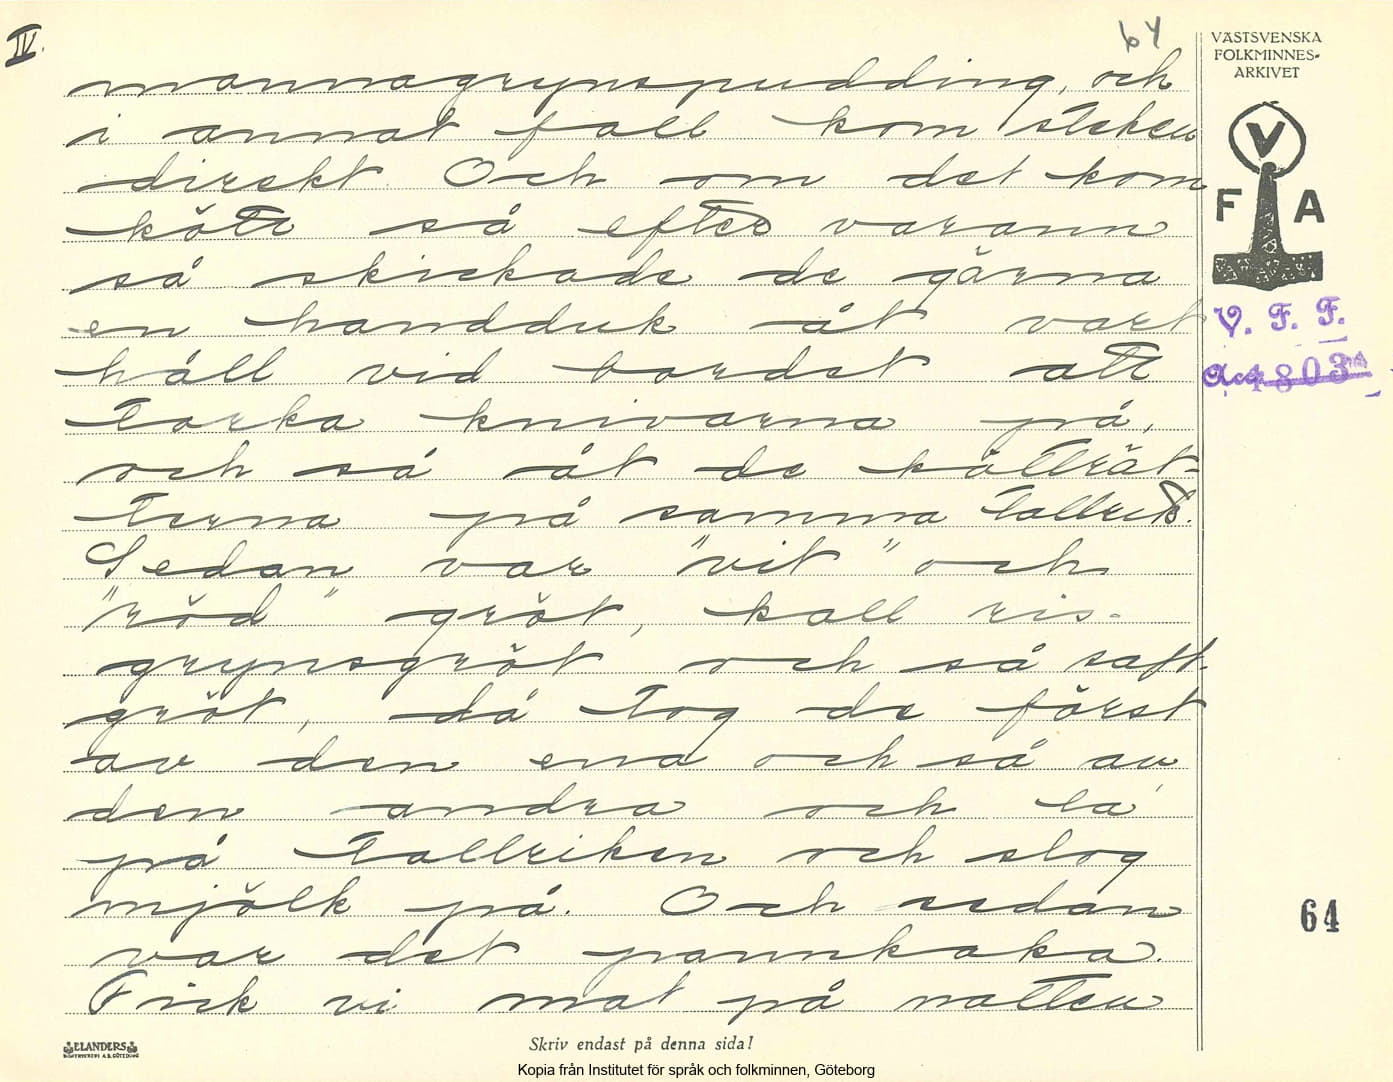 IV.
64
VÄSTSVENSKA
FOLKMINNES-
ARKIVET
V
F A
V. F. F.
Acc 4803
mannagrynspudding, och
i annat fall kom steken
direkt. Och om det kom
kött så efter varann
så skickade de gärna
en handduk åt vart
håll vid bordet att
torka knivarna på,
och så åt de kötträt-
terna på samma tallrik.
Sedan var "vit" och
"röd" gröt, kall ris-
grynsgröt och så saft-
gröt, då tog de först
av den ena och så av
den andra och la'
på tallriken och slog
mjölk på. Och sedan
var det pannkaka.
Fick vi mat på natten
64
ELANDERS
BOKTRYCKERI A.B. GÖTEBORG
Skriv endast på denna sida!
Kopia från Institutet för språk och folkminnen, Göteborg